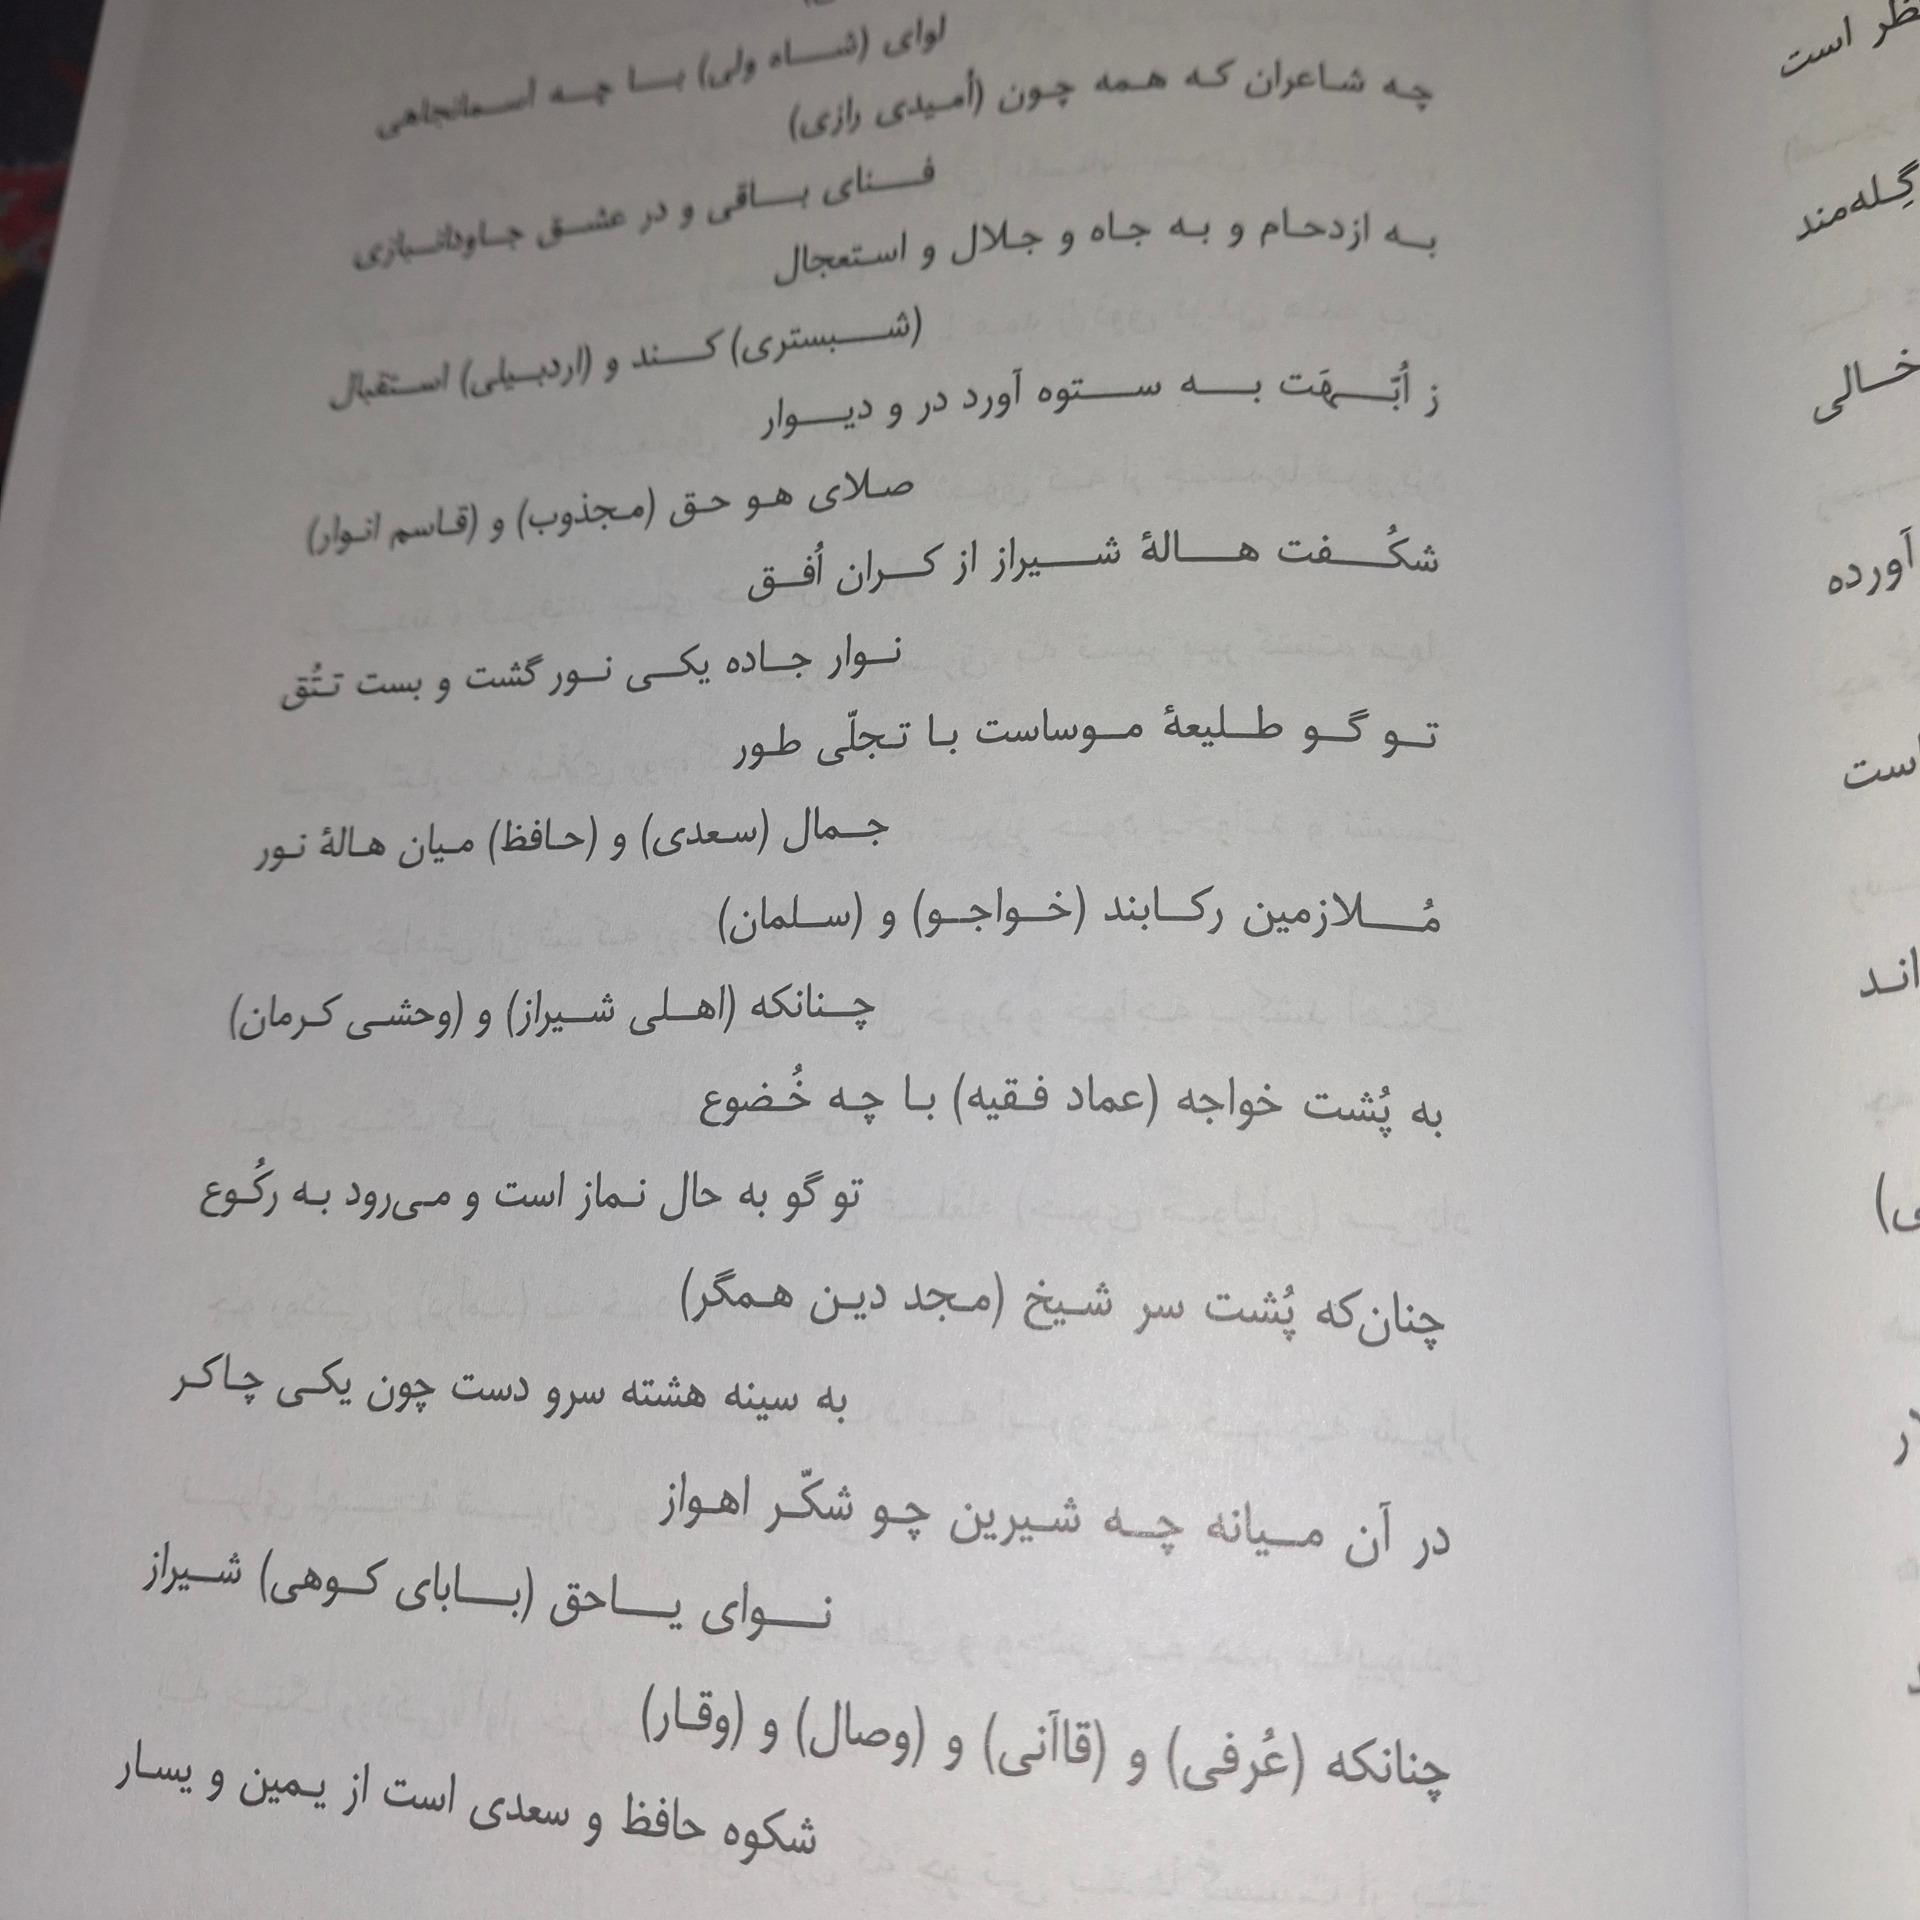 لوای (شاه ولی) با چه اسمانجاهی
چه شاعران که همه چون (اُمیدی رازی)
فنای باقی و در عشق جاودانبازی
به ازدحام و به جاه و جلال و استعجال
(شبستری) کند و (اردبیلی) استقبال
ز اُبّهَت به ستوه آورد در و دیوار
صلای هو حق (مجذوب) و (قاسم انوار)
شکُفت هالهٔ شیراز از کران اُفق
نوار جاده یکی نور گشت و بست تتُق
تو گو طلیعهٔ موساست با تجلّی طور
جمال (سعدی) و (حافظ) میان هالهٔ نور
مُلازمین رکابند (خواجو) و (سلمان)
چنانکه (اهلی شیراز) و (وحشی کرمان)
به پُشت خواجه (عماد فقیه) با چه خُضوع
تو گو به حال نماز است و می‌رود به رکُوع
چنان‌که پُشت سر شیخ (مجد دین همگر)
به سینه هشته سرو دست چون یکی چاکر
در آن میانه چه شیرین چو شکّر اهواز
نوای یاحق (بابای کوهی) شیراز
چنانکه (عُرفی) و (قاآنی) و (وصال) و (وقار)
شکوه حافظ و سعدی است از یمین و یسار
ظر است
گِله‌مند
خالی
آورده
است
اند
ی)